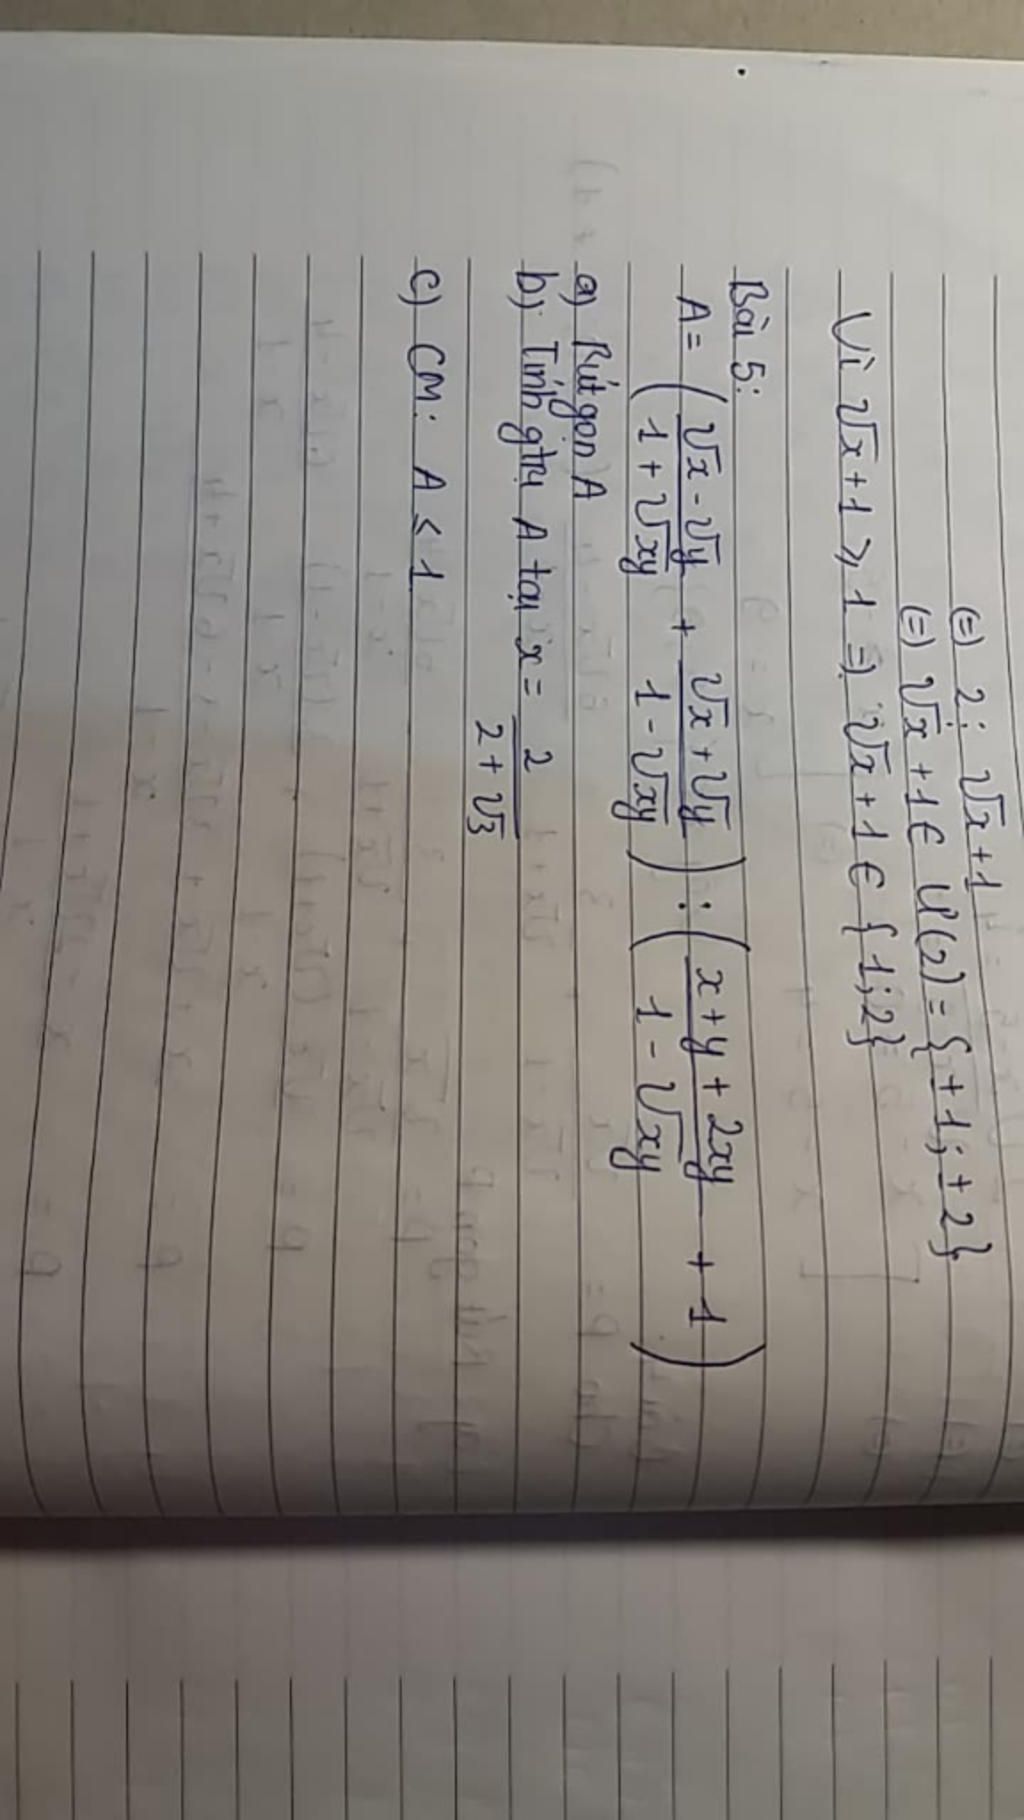 (=) 2 ⋮ √x + 1
(=) √x + 1 ∈ Ư(2) = {±1; ±2}
Vì √x + 1 ≥ 1 => √x + 1 ∈ {1; 2}
Bài 5:
A = ( (√x - √y)/(1 + √xy) + (√x + √y)/(1 - √xy) ) : ( (x + y + 2xy)/(1 - √xy) + 1 )
a) Rút gọn A
b) Tính gtrị A tại x = 2/(2 + √3)
c) CM: A ≤ 1